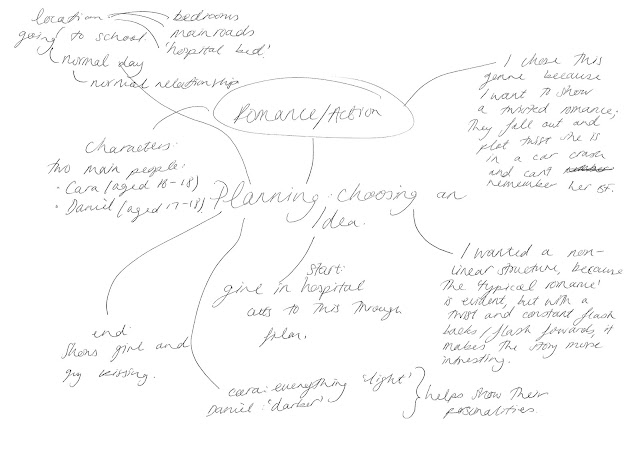 location
bedrooms
main roads
'hospital bed'
going to school
normal day
normal relationship
Romance/Action
I chose this
genre because
I want to show
a twisted romance;
They fall out and
plot twist she is
in a car crash
and cant
remember her BF.
Characters:
two main people:
• Cara (aged 16-18)
• Daniel (aged 17-18)
Planning: choosing an
Idea.
I wanted a non-
linear structure, because
the 'typical romance'
is evident, but with a
twist and constant flash
backs/flash forwards, it
makes the story more
interesting.
start:
girl in hospital
cuts to this through
film.
end:
shows girl and
guy kissing.
cara: everything 'light'
Daniel: 'darker'
helps show their
personalities.